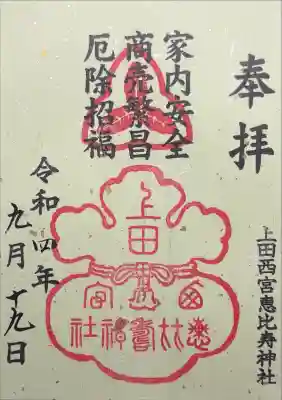 奉拝
家内安全
商売繁昌
厄除招福
上田
西宮
恵比寿
神社
上田西宮恵比寿神社
令和四年
九月十九日